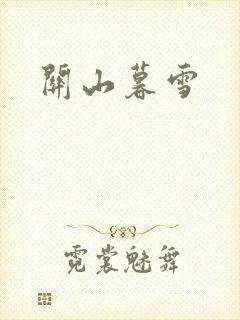 關山暮雪
霓裳魅舞